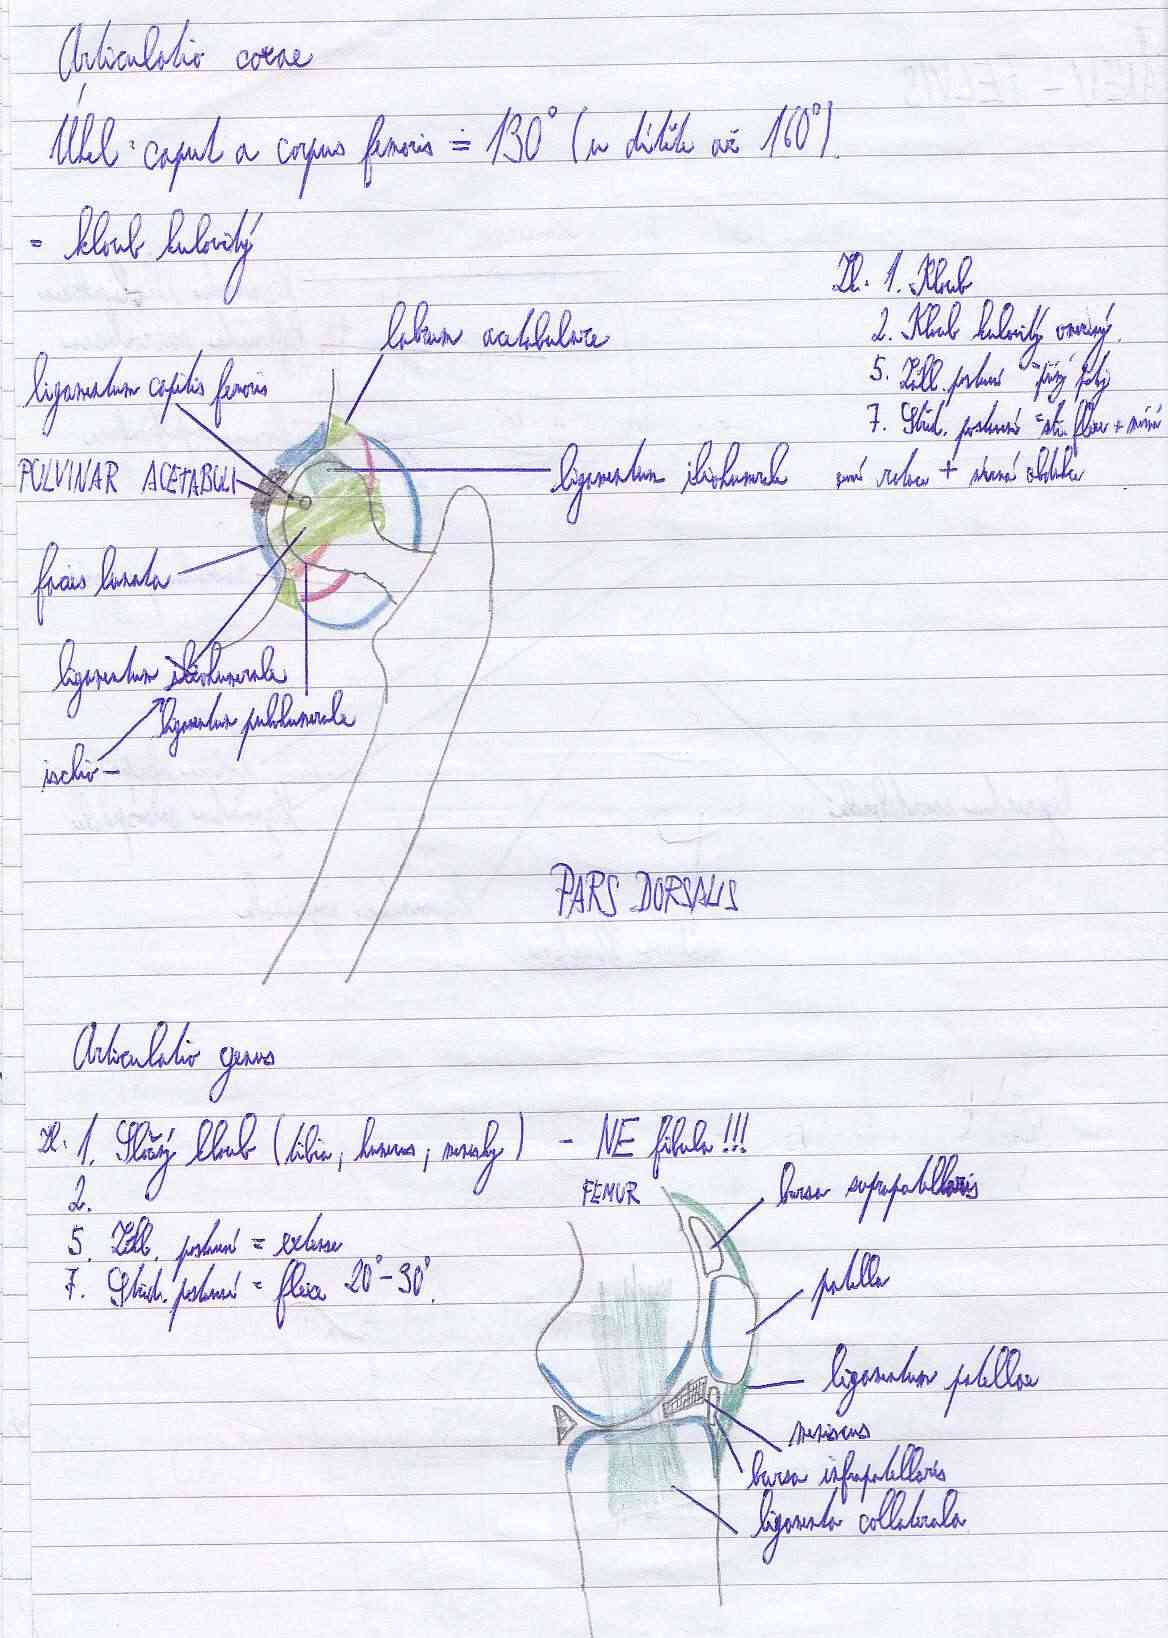 Articulatio coxae
Úhel: caput a corpus femoris ≐ 130° (u dítěte až 160°).
= kloub kulovitý
Zk. 1. Kloub
2. Kloub kulovitý omezený.
5. Zákl. postavení = přímý
7. Střed. postavení = stř. flexe + mírná
rotace + mírná abdukce
labrum acetabulare
ligamentum capitis femoris
PULVINAR ACETABULI
ligamentum iliohumerale
facies lunata
ligamentum iliohumerale
ligamentum pubohumerale
ischio-
PARS DORSALIS
Articulatio genus
Zk. 1. Složený kloub (tibia, humerus, menisky) - NE fibula!!!
2.
5. Zákl. postavení = extense
7. Střed. postavení = flexe 20°-30°.
FEMUR
bursa suprapatellaris
patella
ligamentum patellae
meniscus
bursa infrapatellaris
ligamenta collateralia